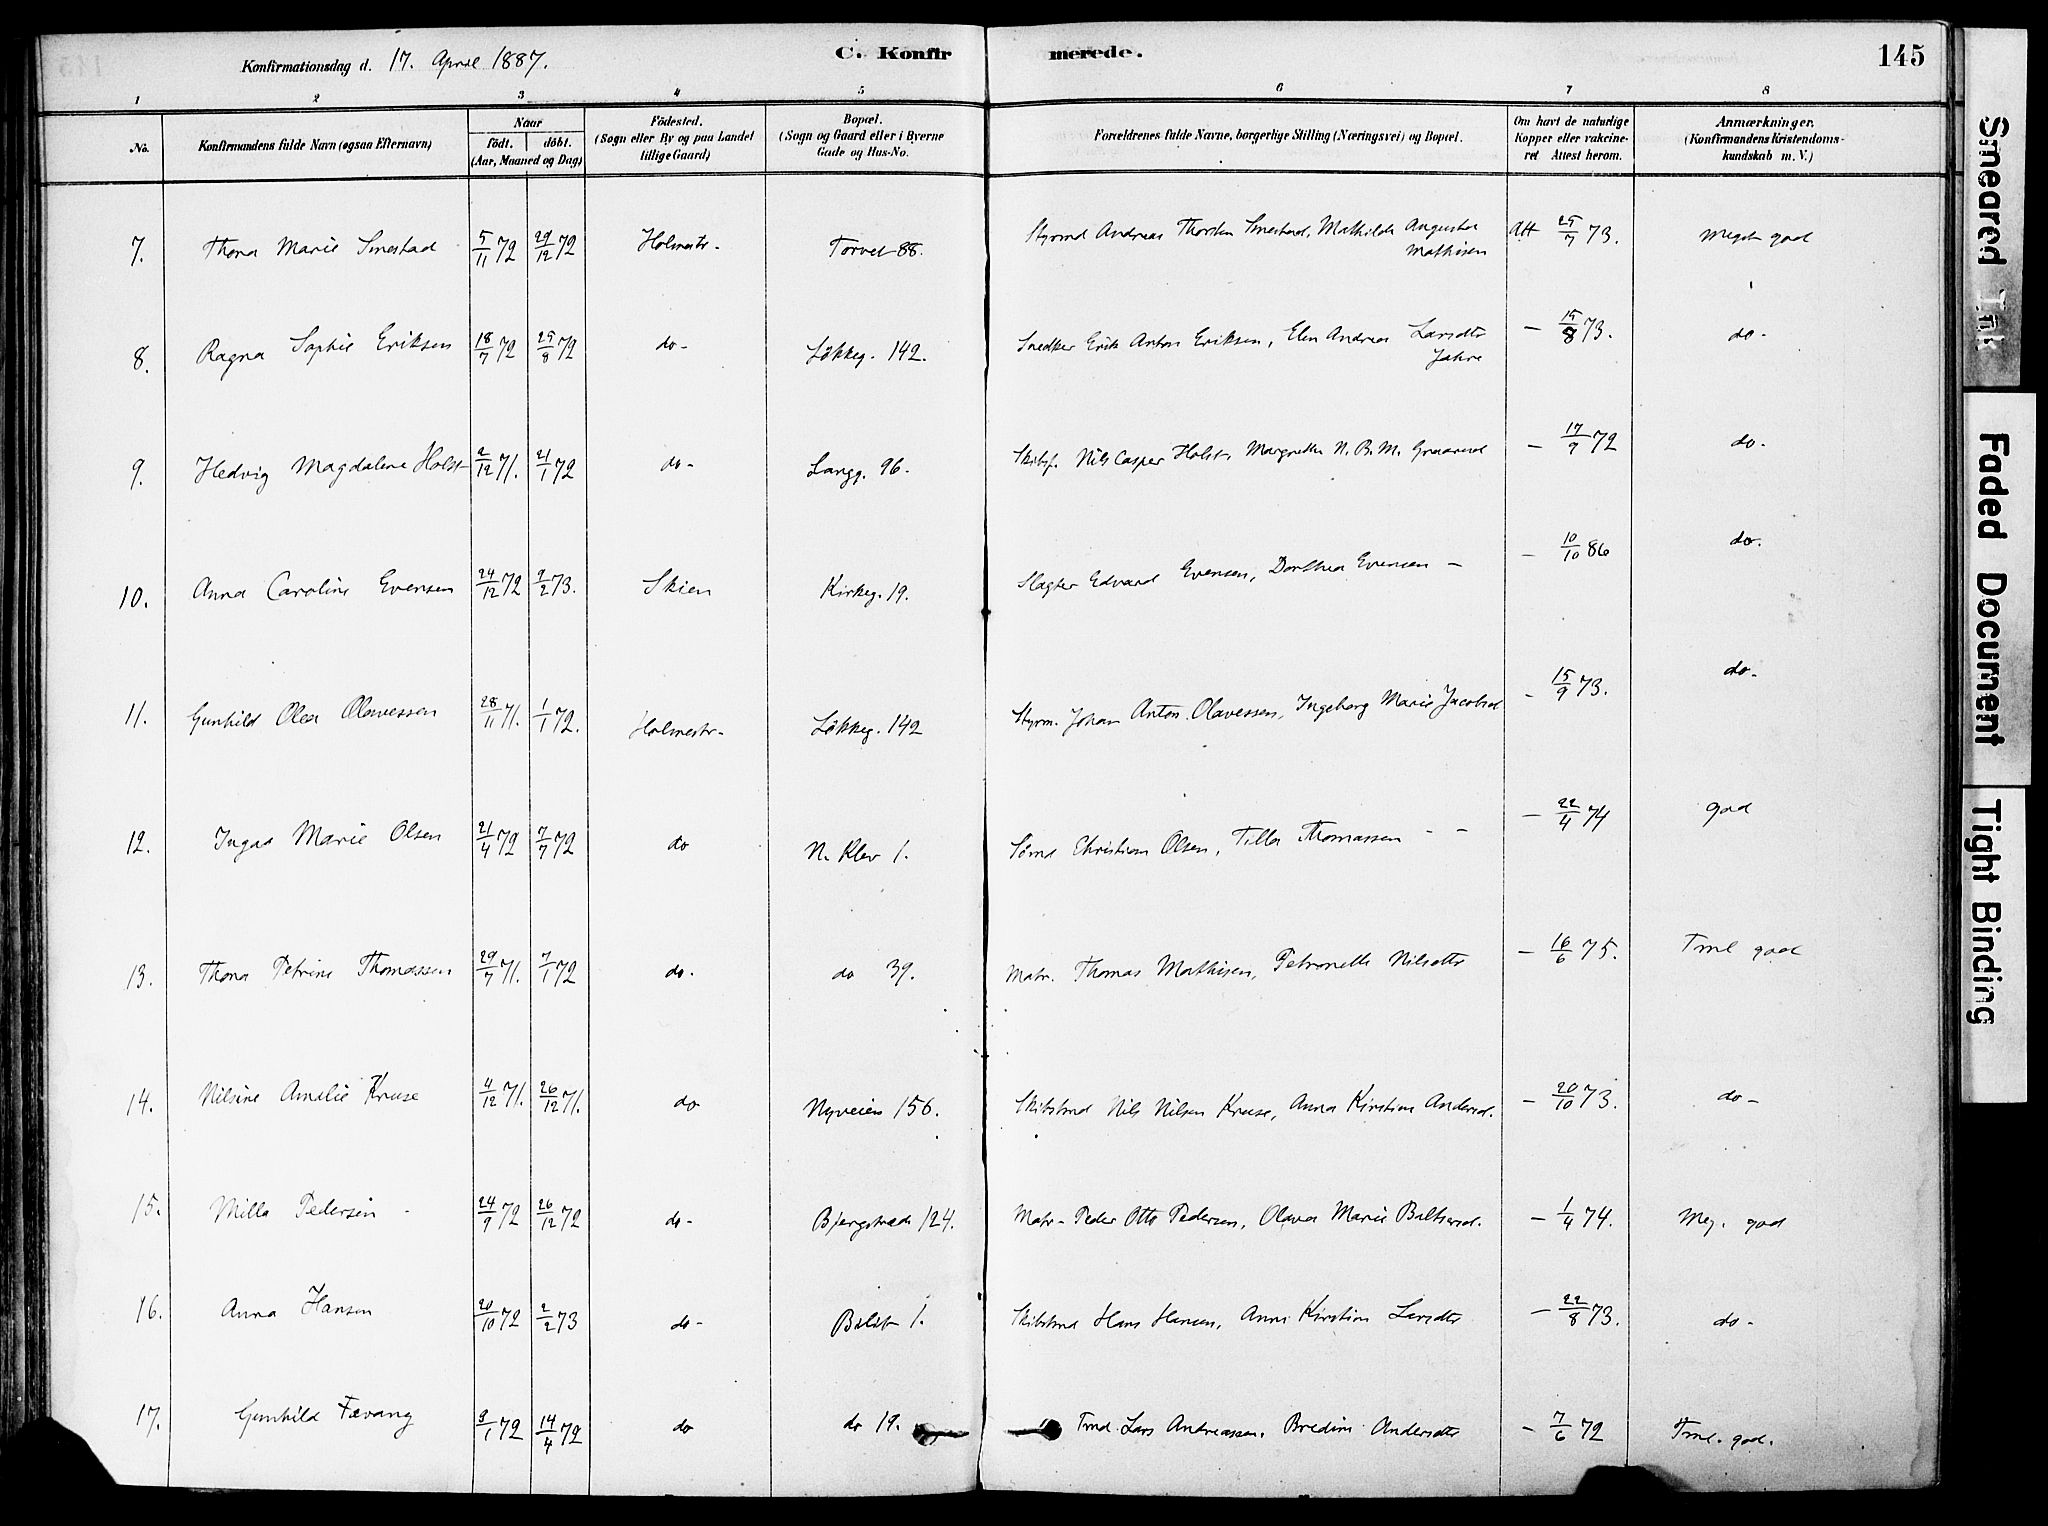 Konfirmationsdag d. 17. April 1887.
C. Konfirmerede.
145
1 2 3 4 5 6 7 8
No.
Konfirmandens fulde Navn (ogsaa Efternavn)
Naar
födt. döbt.
(Aar, Maaned og Dag)
Födested.
(Sogn eller By og paa Landet
tillige Gaard)
Bopæl.
(Sogn og Gaard eller i Byerne
Gade og Hus-No.
Forældrenes fulde Navne, borgerlige Stilling (Næringsvei) og Bopæl.
Om havt de naturlige
Kopper eller vakcine-
ret Attest herom.
Anmærkninger,
(Konfirmandens Kristendoms-
kundskab m. V.)
7. Thora Marie Smestad 5/11 72 29/12 72 Holmestr- Torvet 88. Styrmd Andreas Thorsten Smestad, Mathilde Augusta Mathisen Att 25/7 73. Meget god
8. Ragna Sophie Eriksen 18/7 72 25/8 72 do- Løkkeg. 142. Snedker Erik Anton Eriksen, Elen Andrea Larsdtr Jahre - 15/8 73. do-
9. Hedvig Magdalene Holst 2/12 71. 21/1 72 do- Langg. 96. Skibsf. Nils Casper Holst, Margrethe N. B. M. Graarud - 17/9 72 do-
10. Anna Caroline Evensen 24/12 72 9/2 73. Skien Kirkeg. 19. Slagter Edvard Evensen, Dorthea Evensen - - 10/10 86 do.
11. Gunhild Olea Olavessen 28/11 71. 1/1 72. Holmestr- Løkkeg. 142 Styrm. Johan Anton Olavessen, Ingeborg Marie Jacobsd - 15/9 73. do-
12. Ingad Marie Olsen 21/4 72 7/7 72 do N. Klev 1. Sømd Christian Olsen, Tilla Thomassen - - - 22/4 74 god
13. Thora Petrine Thomassen 29/7 71. 7/1 72 do- do 39. Matr. Thomas Mathisen, Petronelle Nilsdtr - 16/6 75. Tml god
14. Nilsine Amelie Kruse 4/12 71. 26/12 71. do Nyveien 156. Skibstmd Nils Nilsen Kruse, Anna Kirstine Andersd. - 20/10 73. do-
15. Milla Pedersen - 24/9 72 26/12 72 do- Bjergstræde 124. Matr- Peder Otto Pedersen, Olava Marie Baltsersd. - 1/4 74. Meg. god
16. Anna Hansen 20/10 72 2/2 73 do- 1. Skibstmd Hans Hansen, Anne Kirstine Larsdtr - 22/8 73. do-
17. Gunhild Fævang 9/1 72 14/4 72 do do 19. Tmd. Lars Andreassen, Bredine Andersdtr - 7/6 72 Tml. god.
Smeared Ink
Faded Document
Tight Binding